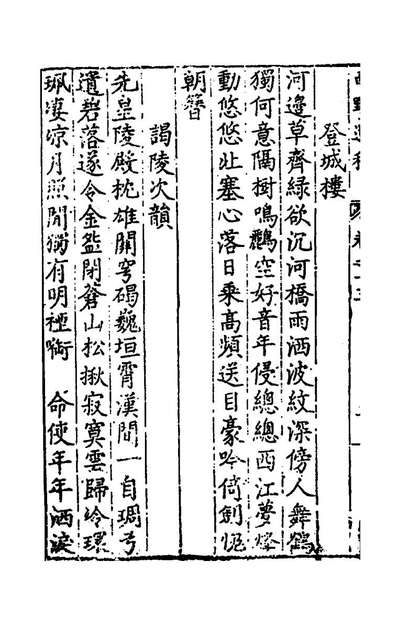 登城樓
河邉草齊綠欲沉河橋雨洒波紋深傍人舞鶴
獨何意隔樹鳴鸝空好音年侵總總西江夢燦
動悠悠北塞心落日乘高頻送目豪吟倚劍慨
朝簪
謁陵次韻
先皇陵殿枕雄關穹碣巍垣霄漢間一自琱弓
遺碧落遂令金盌閉蒼山松揪寂寞雲歸冷環
珮凄凉月照閒獨有明禋啣 命使年年洒淚